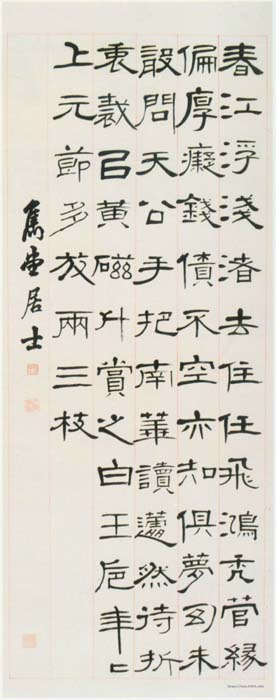 春江浮淺渚去住任飛鴻禿管緣
偏厚癡錢債不空亦知俱夢幻未
敢問天公手把南華讀蘧然待折
衷裁㠯黄磁斗賞之白玉卮年〻
上元節多放兩三枝
居士